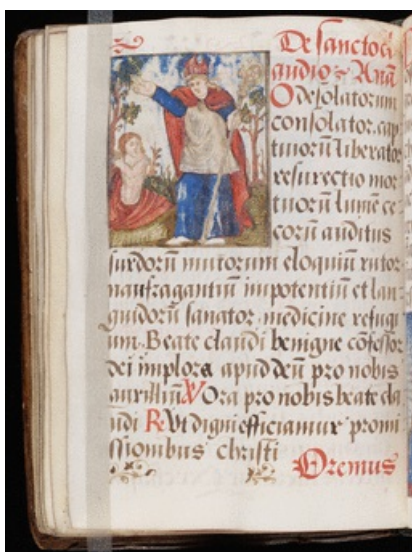 De sancto cl
audio Ana
O desolatorum
consolator. cap
tiuorū liberator
resurectio mor
tuorū lumē ce
corū auditus
surdorū mutorum eloquiū tutor
naufragantiū impotentiū et lan
guidorū sanator. medicine refugi
um. Beate claudi benigne cōfessor
dei implora apud deū pro nobis
auxiliū V Ora pro nobis beate cla
udi R Vt digni efficiamur promi
ssionibus christi
Oremus